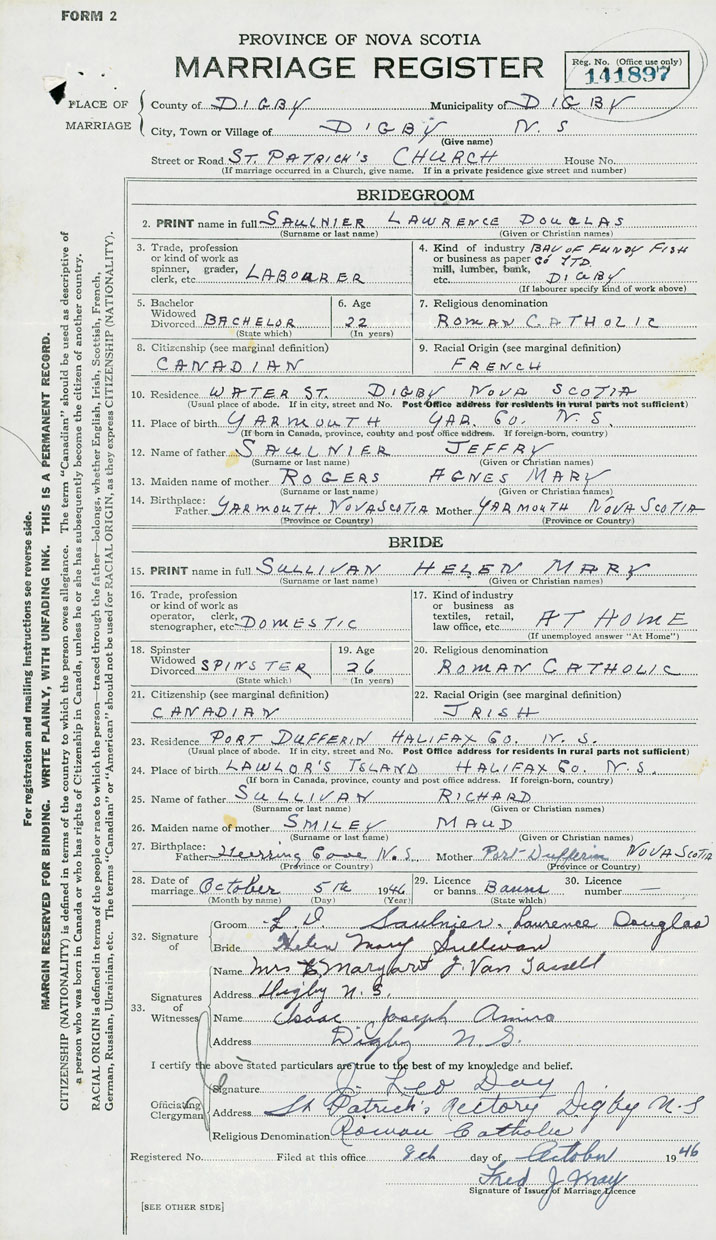 FORM 2
PROVINCE OF NOVA SCOTIA
MARRIAGE REGISTER
Reg. No. (Office use only)
141897
PLACE OF MARRIAGE
County of DIGBY Municipality of DIGBY
City, Town or Village of DIGBY N.S
(Give name)
Street or Road ST. PATRICK'S CHURCH House No.
(If marriage occurred in a Church, give name. If in a private residence give street and number)
BRIDEGROOM
2. PRINT name in full SAULNIER LAWRENCE DOUGLAS
(Surname or last name) (Given or Christian names)
3. Trade, profession or kind of work as spinner, grader, clerk, etc. LABOURER
4. Kind of industry or business as paper mill, lumber, bank, etc. BAY OF FUNDY FISH Co LTD. DIGBY
(If labourer specify kind of work above)
5. Bachelor Widowed Divorced BACHELOR
(State which)
6. Age 22
(In years)
7. Religious denomination
ROMAN CATHOLIC
8. Citizenship (see marginal definition)
CANADIAN
9. Racial Origin (see marginal definition)
FRENCH
10. Residence WATER ST. DIGBY NOVA SCOTIA
(Usual place of abode. If in city, street and No. Post Office address for residents in rural parts not sufficient)
11. Place of birth YARMOUTH YAR. Co. N.S.
(If born in Canada, province, county and post office address. If foreign-born, country)
12. Name of father SAULNIER JEFFRY
(Surname or last name) (Given or Christian names)
13. Maiden name of mother ROGERS AGNES MARY
(Surname or last name) (Given or Christian names)
14. Birthplace: Father YARMOUTH. NOVA SCOTIA Mother YARMOUTH NOVA SCOTIA
(Province or Country) (Province or Country)
BRIDE
15. PRINT name in full SULLIVAN HELEN MARY
(Surname or last name) (Given or Christian names)
16. Trade, profession or kind of work as operator, clerk, stenographer, etc. DOMESTIC
17. Kind of industry or business as textiles, retail, law office, etc. AT HOME
(If unemployed answer "At Home")
18. Spinster Widowed Divorced SPINSTER
(State which)
19. Age 26
(In years)
20. Religious denomination
ROMAN CATHOLIC
21. Citizenship (see marginal definition)
CANADIAN
22. Racial Origin (see marginal definition)
IRISH
23. Residence PORT DUFFERIN HALIFAX Co. N.S.
(Usual place of abode. If in city, street and No. Post Office address for residents in rural parts not sufficient)
24. Place of birth LAWLOR'S ISLAND HALIFAX Co. N.S.
(If born in Canada, province, county and post office address. If foreign-born, country)
25. Name of father SULLIVAN RICHARD
(Surname or last name) (Given or Christian names)
26. Maiden name of mother SMILEY MAUD
(Surname or last name) (Given or Christian names)
27. Birthplace: Father Herring Cove N.S. Mother Port Dufferin NOVA SCOTIA
(Province or Country) (Province or Country)
28. Date of marriage October 5th 1946
(Month by name) (Day) (Year)
29. Licence or banns Banns
(State which)
30. Licence number —
32. Signature of
Groom L D. Saulnier. Laurence Douglas
Bride Helen Mary Sullivan
33. Signatures of Witnesses
Name Mrs Margaret J. Van Tassell
Address Digby N.S.
Name Isaac Joseph Amiro
Address Digby N.S.
I certify the above stated particulars are true to the best of my knowledge and belief.
Officiating Clergyman
Signature J. Leo Day
Address St Patrick's Rectory Digby N.S
Religious Denomination Roman Catholic
Registered No. Filed at this office 8th day of October 1946
Fred J May
Signature of Issuer of Marriage Licence
[SEE OTHER SIDE]
For registration and mailing instructions see reverse side.
MARGIN RESERVED FOR BINDING. WRITE PLAINLY, WITH UNFADING INK. THIS IS A PERMANENT RECORD.
CITIZENSHIP (NATIONALITY) is defined in terms of the country to which the person owes allegiance. The term "Canadian" should be used as descriptive of
a person who was born in Canada or who has rights of Citizenship in Canada, unless he or she has subsequently become the citizen of another country.
RACIAL ORIGIN is defined in terms of the people or race to which the person—traced through the father—belongs, whether English, Irish, Scottish, French,
German, Russian, Ukrainian, etc. The terms "Canadian" or "American" should not be used for RACIAL ORIGIN, as they express CITIZENSHIP (NATIONALITY).